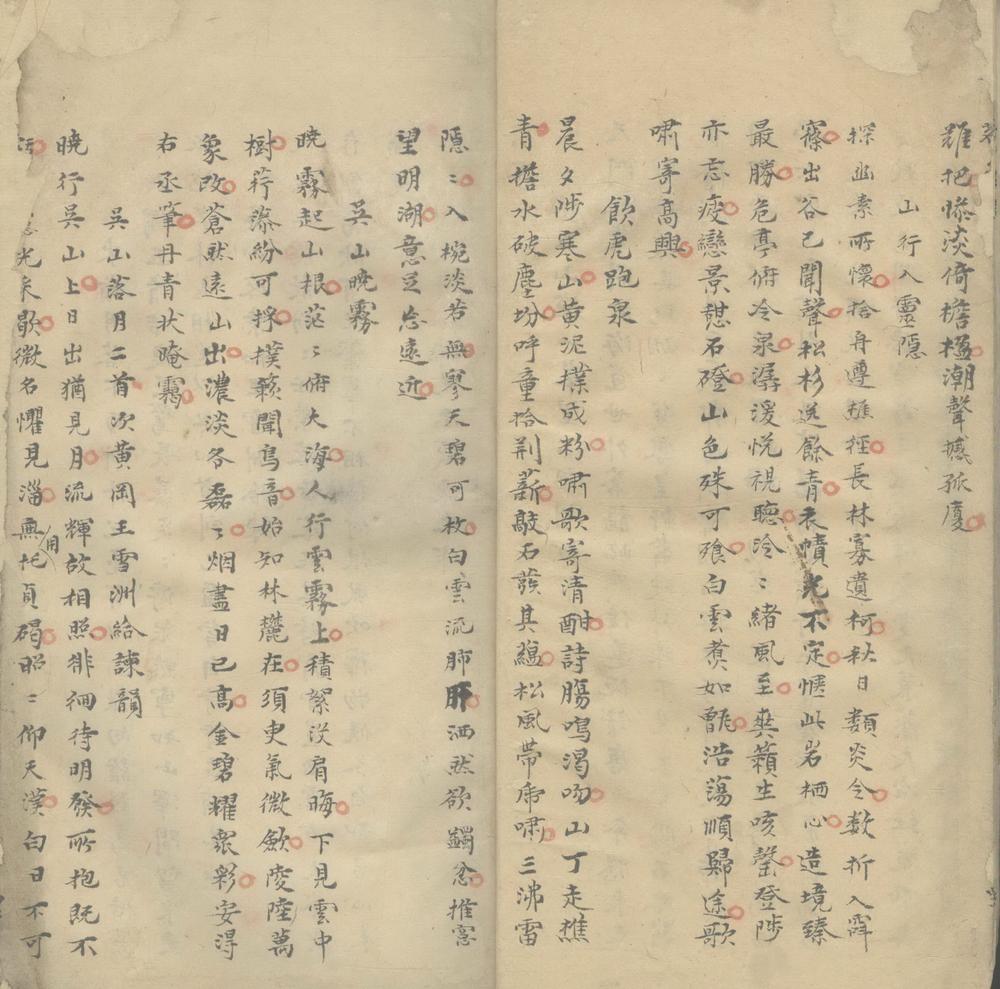 難把慘淡倚檐楹潮聲撼孤廈
山行入靈隱
探幽素所懷拾舟遵樵徑長林寡遺柯秋日類炎令数折入窅
寥出谷已聞聲松杉逸餘青衣幘光不定愜此岩栖心造境臻
最勝危亭俯冷泉潺湲悅視聽泠〻緒風至爽籟生咳罄登陟
亦忘疲戀景憩石磴山色殊可飡白雲煑如甑浩蕩順歸途歌
嘯寄高興
飲虎跑泉
晨夕陟寒山黄泥撲成粉嘯歌寄清酣詩腸鳴渴吻山丁走樵
青擔水破塵坋呼童拾荆薪敲石發其藴松風帶虎嘯三沸雷
隱〻入椀淡若無寥天碧可枚白雲流肺肝洒然欲蠲忿推窓
望明湖意足忘遠近
吳山曉霧
曉霧起山根茫〻俯大海人行雲霧上積絮没肩晦下見雲中
樹荇藻紛可採撲簌聞鳥音始知林麓在須臾氣微歛陵陸萬
象改蒼然遠山出濃淡各磊〻烟盡日已高金碧耀衆彩安得
右丞筆丹青狀晻靄
吳山落月二首次黄岡王雪洲給諫韻
曉行吳山上日出猶見月流輝故相照徘徊待明發所抱旣不
光采歇微名懼見淄無用托貞碣昭〻仰天漢白日不可